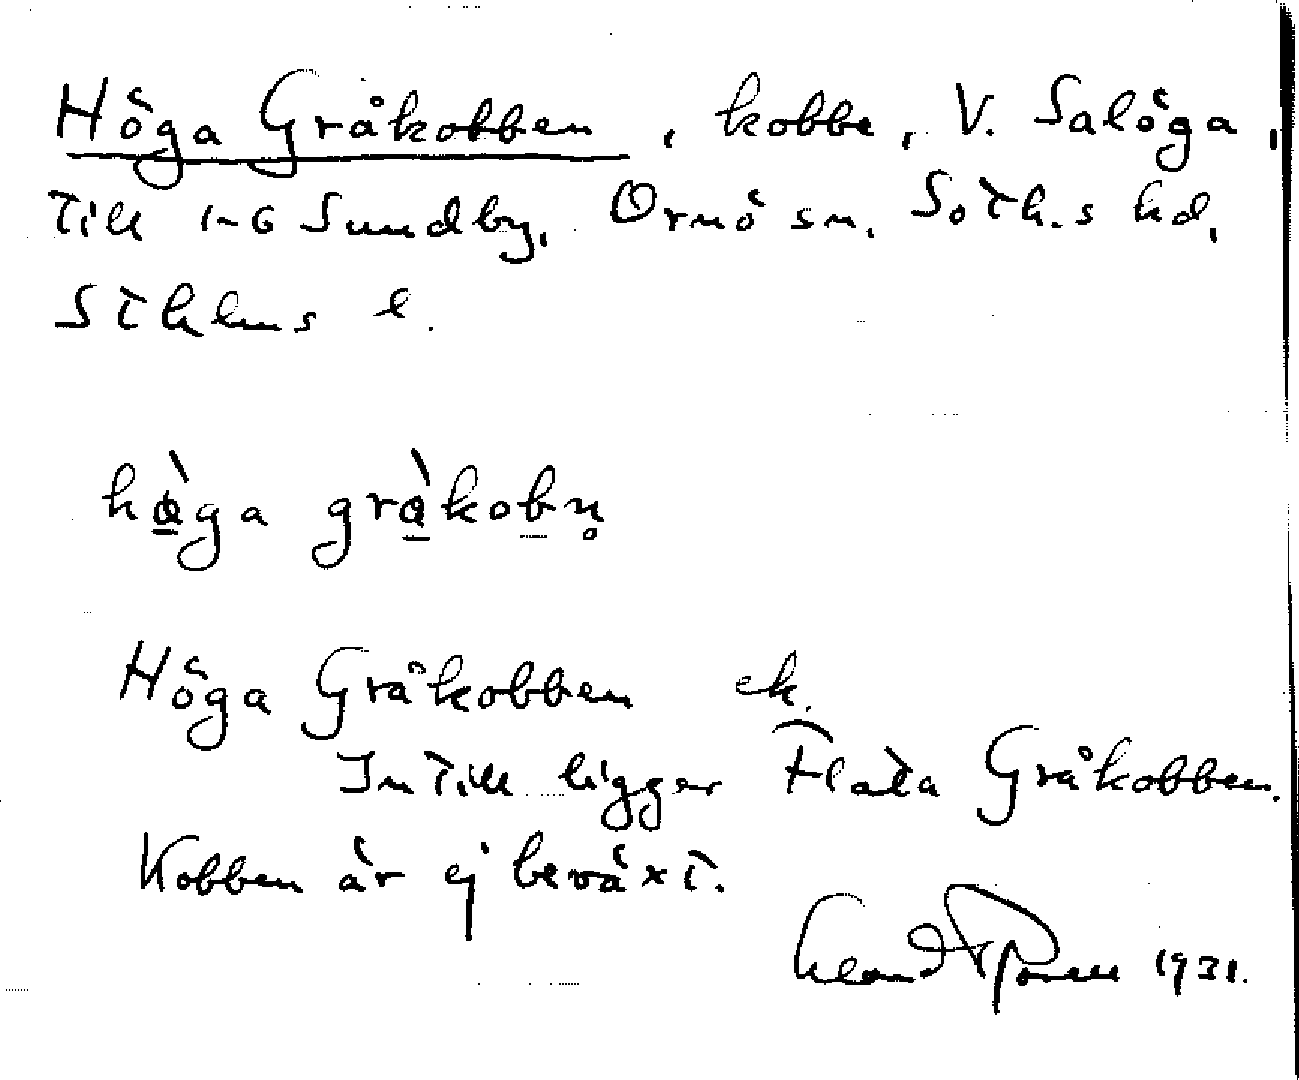 Höga Gråkobben, kobbe, V. Salöga,
till 1-6 Sundby, Ornö sn, Soth.s hd,
Sthlms l.
hø̀ga grå̀kobn̥
Höga Gråkobben ek.
Intill ligger Flata Gråkobben.
Kobben är ej beväxt.
1931.